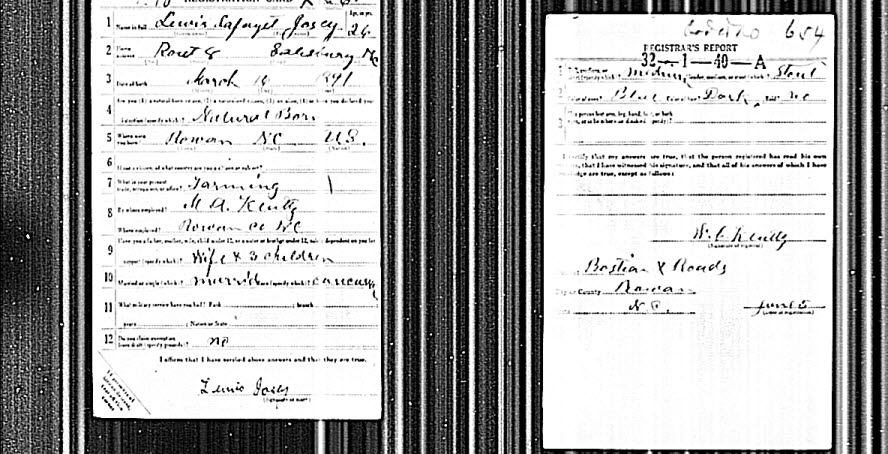 REGISTRATION CARD
1 Name in full Lewis Lafayet Josey 26
2 Home address Rout 8 Salisbury NC
3 Date of birth March 1891
4 Are you (1) a natural born citizen, (2) a naturalized citizen, (3) an alien, (4) or have you declared your
intention (specify which)? Natural Born
5 Where were you born? Rowan NC U.S.
6 If not a citizen, of what country are you a citizen or subject?
7 What is your present trade, occupation, or office? Farming
8 By whom employed? M A. Kluttz
Where employed? Rowan co NC
9 Have you a father, mother, wife, child under 12, or a sister or brother under 12, solely dependent on you for
support (specify which)? Wife & 3 children
10 Married or single (which)? married Race (specify which)?
11 What military service have you had? Rank ; branch
years ; Nation or State
12 Do you claim exemption from draft (specify grounds)? no
I affirm that I have verified above answers and that they are true.
Lewis Josey
(Signature or mark)
654
REGISTRAR'S REPORT
32—1—40—A
1 medium Slender, medium, or stout (which)? Stout
2 Color of eyes? Blue Color of hair? Dark Bald? no
3 Has person lost arm, leg, hand, foot, or both
I certify that my answers are true, that the person registered has read his own
that I have witnessed his signature, and that all of his answers of which I have
knowledge are true, except as follows:
W. C Kluttz
(Signature of registrar)
Bostian X Roads
City or County Rowan
N.C. June 5
(Date of registration)